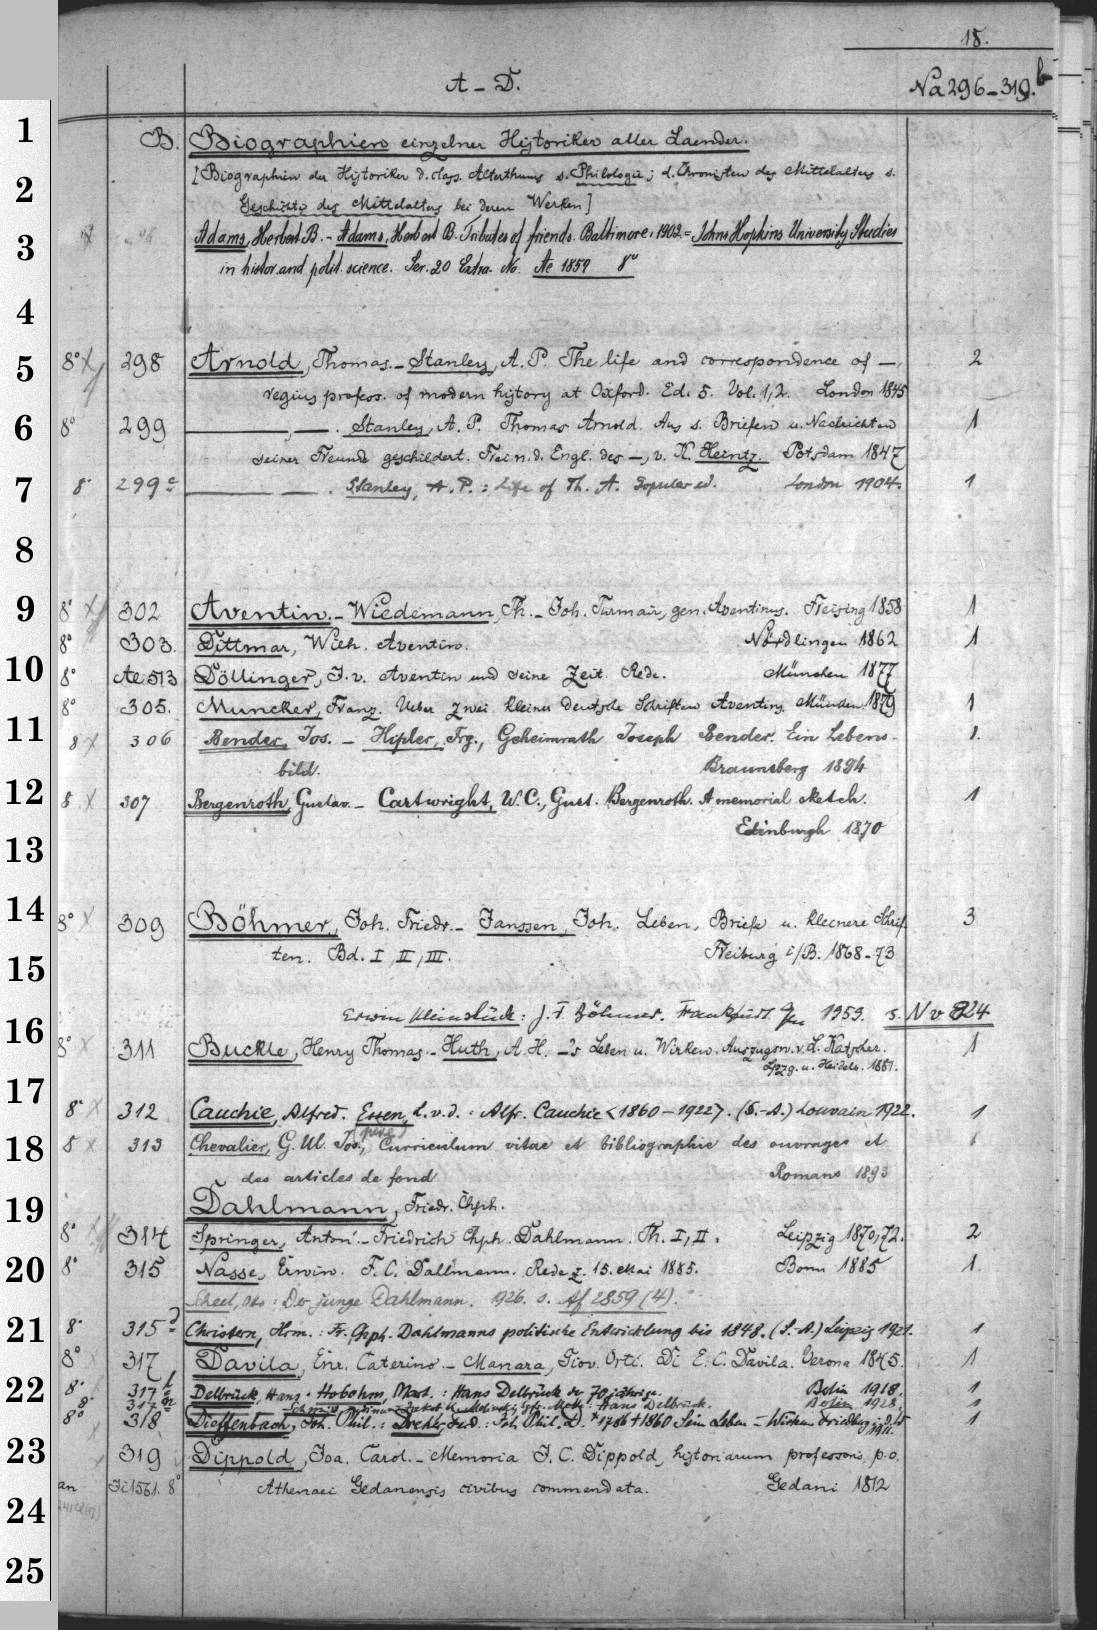 15.
A – D.
Na 296–319. b
B. Biographien einzelner Historiker aller Laender.
[Biographien der Historiker d. class. Alterthums s. Philologie; d. Chronisten des Mittelalters s.
Geschichte des Mittelalters bei deren Werken]
Adams, Herbert B. – Adams, Herbert B. Tributes of friends. Baltimore 1902 = Johns Hopkins University Studies
in histor. and polit. science. Ser. 20 Extra. No. Ae 1859 8°
8° 298 Arnold, Thomas. – Stanley, A. P. The life and correspondence of —, 2
regius profess. of modern history at Oxford. Ed. 5. Vol. 1, 2. London 1845
8° 299 ———, —. Stanley, A. P. Thomas Arnold. Aus s. Briefen u. Nachrichten 1
seiner Freunde geschildert. Frei n. d. Engl. des —, v. K. Heintz. Potsdam 1847
8° 299a ——— —. Stanley, A. P.: Life of Th. A. Popular ed. London 1904. 1
8° 302 Aventin. – Wiedemann, Th. – Joh. Turmair, gen. Aventinus. Freising 1858 1
8° 303. Dittmar, Wilh. Aventin. Nördlingen 1862 1
8° Ae 513 Döllinger, J. v. Aventin und seine Zeit. Rede. München 1877
8° 305. Muncker, Franz. Ueber zwei kleine deutsche Schriften Aventins. München 1879 1
8 306 Bender, Jos. – Hipler, Frz., Geheimrath Joseph Bender. Ein Lebens- 1.
bild. Braunsberg 1894
8 307 Bergenroth, Gustav. – Cartwright, W. C., Gust. Bergenroth. A memorial sketch. 1
Edinburgh 1870
8° 309 Böhmer, Joh. Friedr. – Janssen, Joh. Leben, Briefe u. kleinere Schrif- 3
ten. Bd. I, II, III. Freiburg i/B. 1868–73
Erwin Kleinstück: J. F. Böhmer. Frankfurt 1959. s. N v 824
8° 311 Buckle, Henry Thomas. – Huth, A. H. –'s Leben u. Wirken. Auszugsw. v. L. Katscher. 1
Lpzg. u. Heidelb. 1881.
8° 312 Cauchie, Alfred. Essen, L. v. d.: Alfr. Cauchie <1860–1922>. (S.-A.) Louvain 1922. 1
8 313 Chevalier, G. Ul. Jos., Curriculum vitae et bibliographie des ouvrages et 1
des articles de fond Romans 1893
Dahlmann, Friedr. Chph.
8° 314 Springer, Anton. – Friedrich Chph. Dahlmann. Th. I, II. Leipzig 1870, 72. 2
8° 315 Nasse, Erwin. F. C. Dallmann. Rede z. 15. Mai 1885. Bonn 1885 1.
Scheel, Otto: Der junge Dahlmann. 1926. s. Af 2859 (4).
8° 315a Christern, Herm.: Fr. Chph. Dahlmanns politische Entwicklung bis 1848. (S.-A.) Leipzig 1921. 1
8° 317 Davila, Enr. Caterino – Manara, Giov. Orti. Di E. C. Davila. Verona 1845. 1
8° 317 l Delbrück, Hans: Hobohm, Mart.: Hans Delbrück der 70jährige. Berlin 1918. 1
8° 317 m Hans Delbrück. Berlin 1928. 1
8° 318 Dieffenbach, Joh. Phil.: Dreher, Ferd.: Joh. Phil. D. *1786 †1860. Sein Leben – Wirken Friedberg i. d. W 1911. 1
319 Dippold, Joa. Carol. – Memoria J. C. Dippold, historiarum professoris, p. o.
an Ji 1561. 8° Athenaei Gedanensis civibus commendata. Gedani 1812